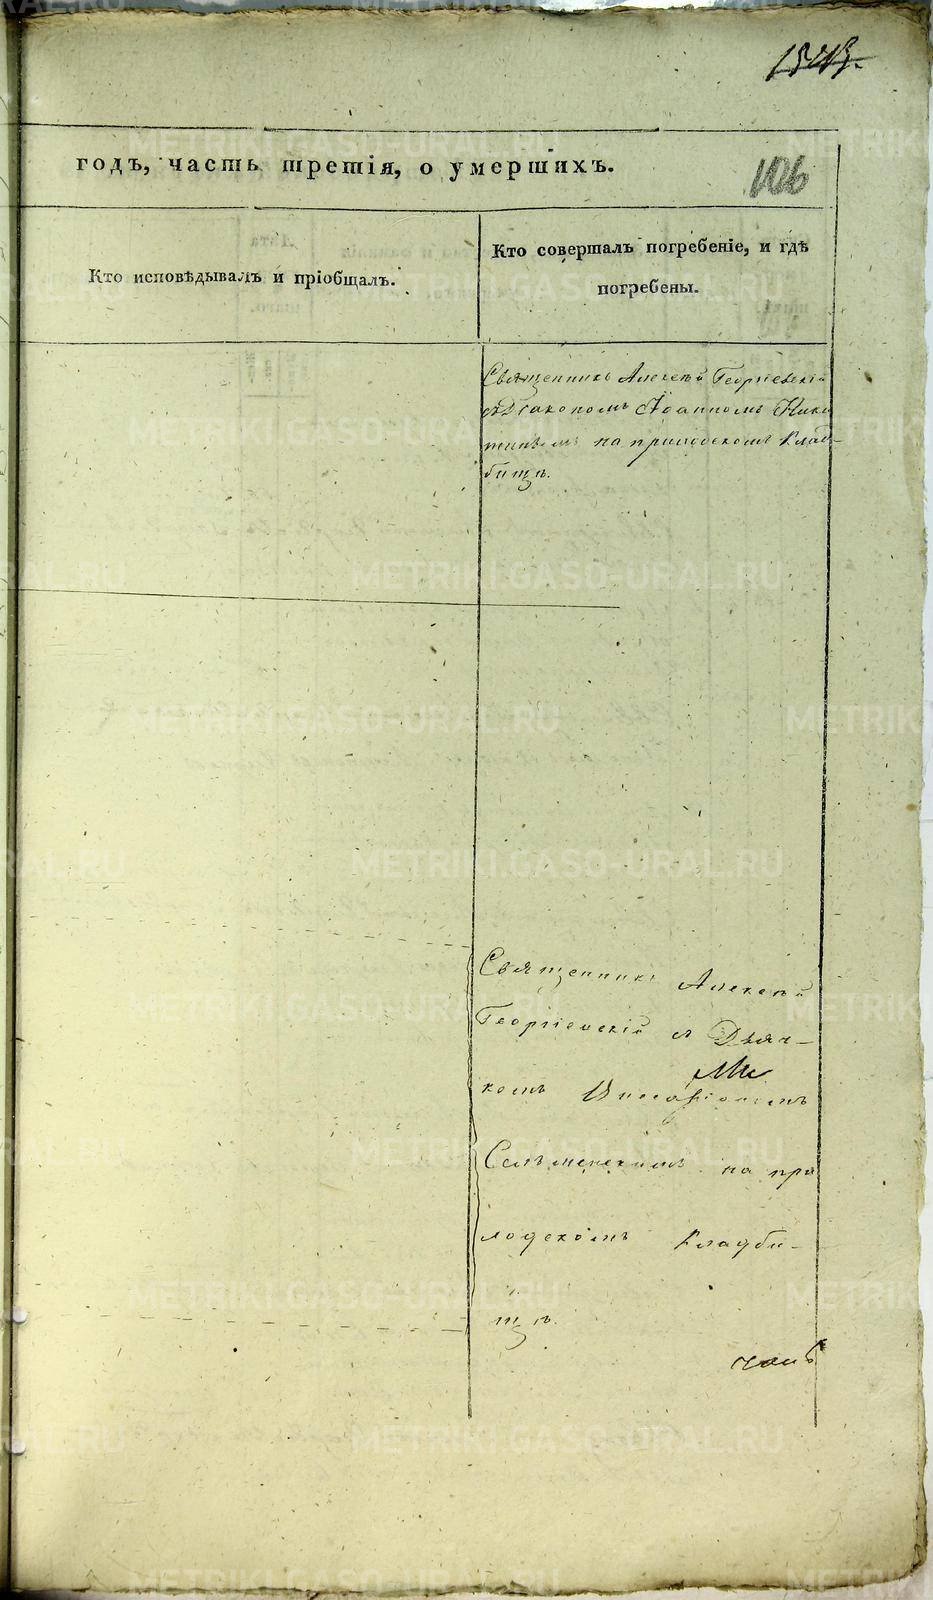 годъ, часть третія, о умершихъ.
106
Кто исповѣдывалъ и пріобщалъ.
Кто совершалъ погребеніе, и гдѣ
погребены.
Священникъ Алексѣй Георгіевскій
съ Діакономъ Іоанномъ Ники
тинымъ на приходскомъ клад-
бищѣ.
Священникъ Алексѣй
Георгіевскій съ Дьяч-
комъ
на при
ходскомъ кладби-
щѣ.
METRIKI.GASO-URAL.RU